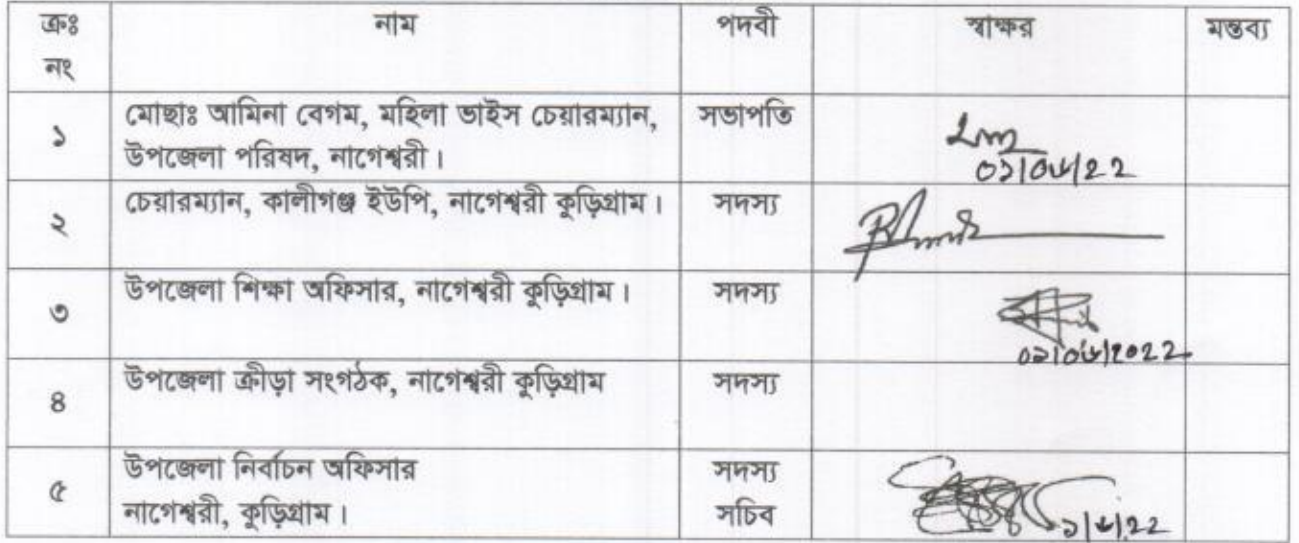 ক্রঃ নং নাম পদবী স্বাক্ষর মন্তব্য
১ মোছাঃ আমিনা বেগম, মহিলা ভাইস চেয়ারম্যান, সভাপতি
উপজেলা পরিষদ, নাগেশ্বরী।
২ চেয়ারম্যান, কালীগঞ্জ ইউপি, নাগেশ্বরী কুড়িগ্রাম। সদস্য
৩ উপজেলা শিক্ষা অফিসার, নাগেশ্বরী কুড়িগ্রাম। সদস্য
৪ উপজেলা ক্রীড়া সংগঠক, নাগেশ্বরী কুড়িগ্রাম সদস্য
৫ উপজেলা নির্বাচন অফিসার সদস্য
নাগেশ্বরী, কুড়িগ্রাম। সচিব